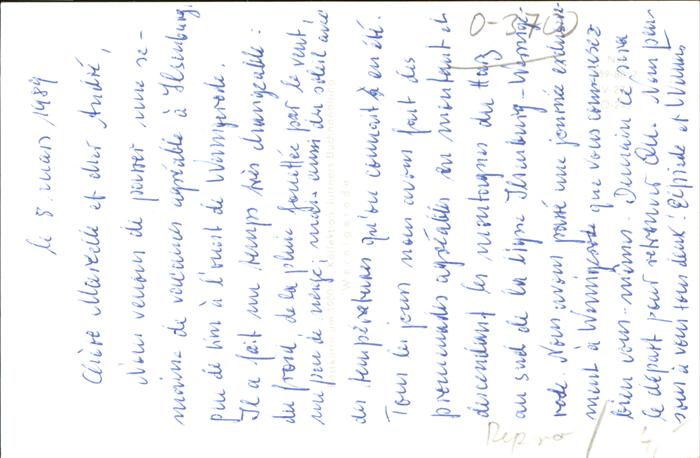 le 5. mars 1989
Chère Marcelle et cher André,
Nous venons de passer une se-
maine de vacances agréable à Ilsenburg.
peu de km à l'ouest de Wernigerode.
Il a fait un temps très changeable:
du froid, de la pluie fouettée par le vent,
un peu de neige; mais aussi du soleil avec
des températures qu'on connait à en été.
Tous les jours nous avons fait des
promenades agréables en montant et
descendant les montagnes du Harz
au sud de la ligne Ilsenburg-Wernige-
rode. Nous avons passé une journée exclusive-
ment à Wernigerode que vous connaissez
bien vous-mêmes. Demain ce sera
le départ pour retrouver Nous pen-
sons à vous tous deux! et
0-3700
Wernigerode